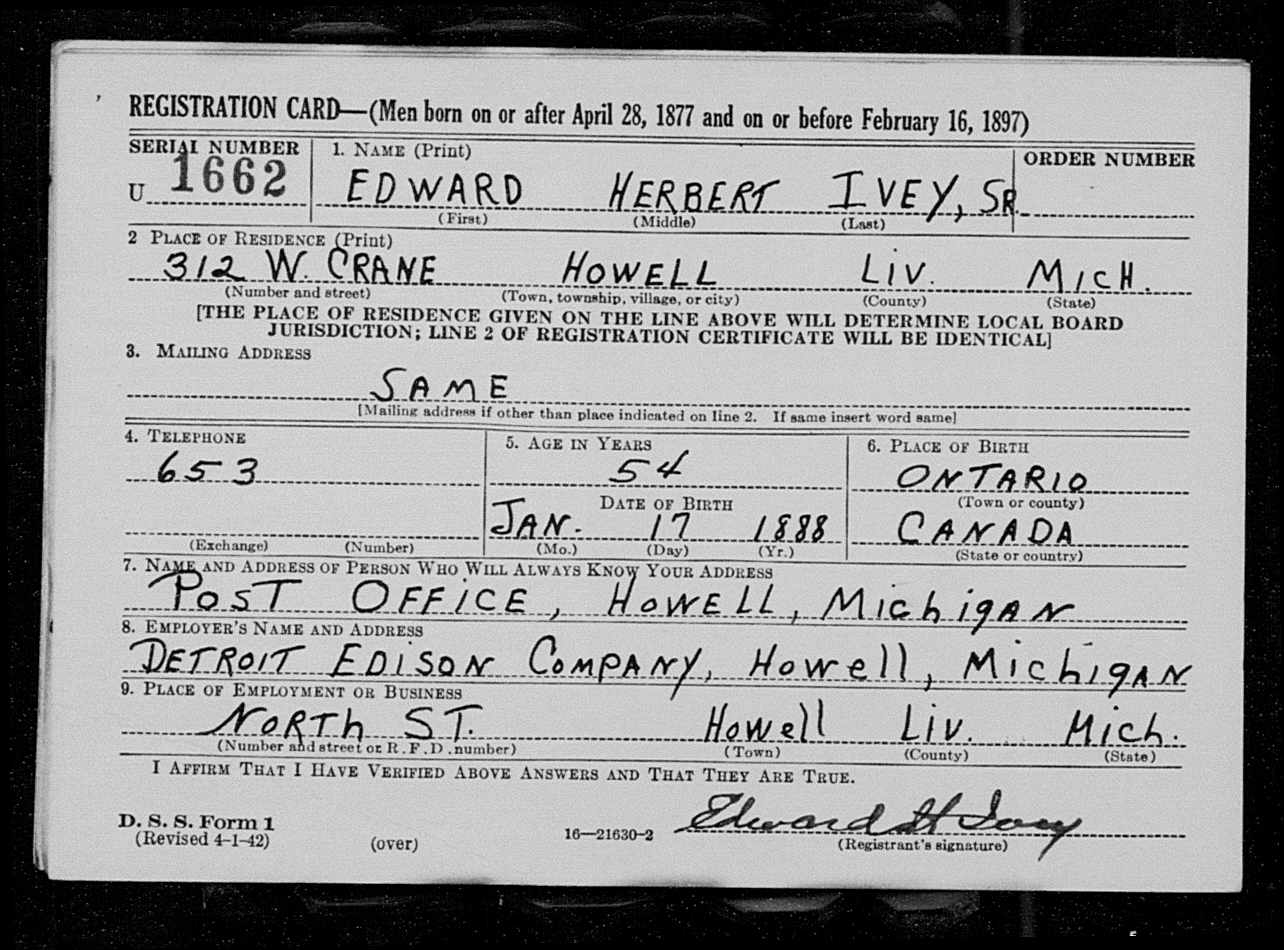 REGISTRATION CARD—(Men born on or after April 28, 1877 and on or before February 16, 1897)
SERIAL NUMBER
1. NAME (Print)
ORDER NUMBER
U 1662
EDWARD HERBERT IVEY, SR.
(First) (Middle) (Last)
2 PLACE OF RESIDENCE (Print)
312 W. CRANE HOWELL LIV. MICH.
(Number and street) (Town, township, village, or city) (County) (State)
[THE PLACE OF RESIDENCE GIVEN ON THE LINE ABOVE WILL DETERMINE LOCAL BOARD
JURISDICTION; LINE 2 OF REGISTRATION CERTIFICATE WILL BE IDENTICAL]
3. MAILING ADDRESS
SAME
[Mailing address if other than place indicated on line 2. If same insert word same]
4. TELEPHONE
653
(Exchange) (Number)
5. AGE IN YEARS
54
DATE OF BIRTH
JAN. 17 1888
(Mo.) (Day) (Yr.)
6. PLACE OF BIRTH
ONTARIO
(Town or county)
CANADA
(State or country)
7. NAME AND ADDRESS OF PERSON WHO WILL ALWAYS KNOW YOUR ADDRESS
POST OFFICE, HOWELL, MichigAN
8. EMPLOYER'S NAME AND ADDRESS
DETROIT EDISON COMPANY, Howell, MichigAN
9. PLACE OF EMPLOYMENT OR BUSINESS
NORTh ST. Howell Liv. Mich.
(Number and street or R. F. D. number) (Town) (County) (State)
I AFFIRM THAT I HAVE VERIFIED ABOVE ANSWERS AND THAT THEY ARE TRUE.
Edward H Ivey
D. S. S. Form 1
(Revised 4-1-42) (over) 16—21630-2 (Registrant's signature)